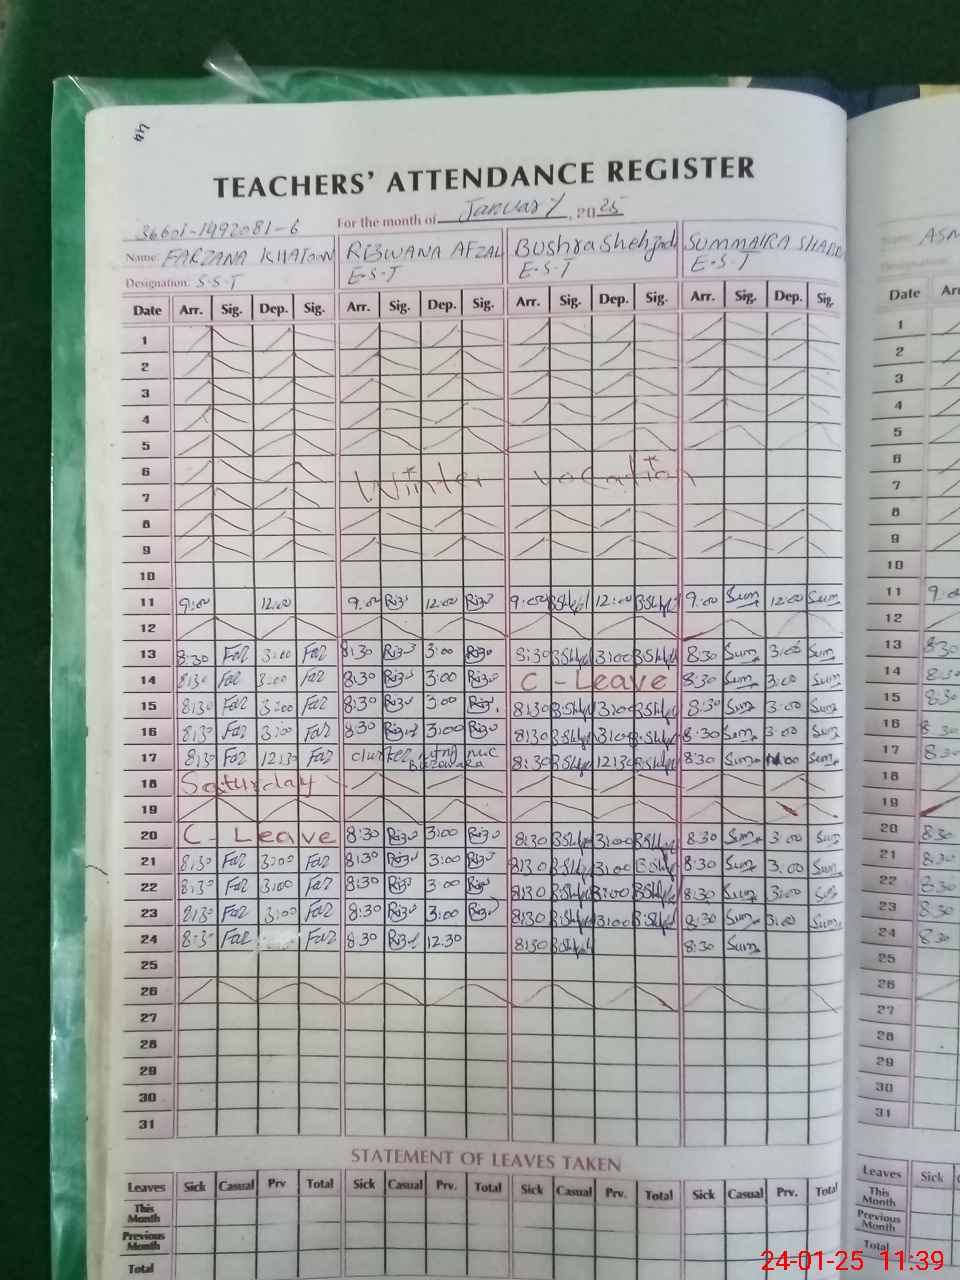 44
TEACHERS' ATTENDANCE REGISTER
For the month of January, 2025
36601-1492081-6
Name: FARZANA KHATOON RIZWANA AFZAL Bushra Shehzadi SUMMAIRA ASM
Designation: S.S.T E.S.T E.S.T E.S.T
Date Arr. Sig. Dep. Sig. Arr. Sig. Dep. Sig. Arr. Sig. Dep. Sig. Arr. Sig. Dep. Sig. Date Arr
1 1
2 2
3 3
4 4
5 5
6 Winter vacation 6
7 7
8 8
9 9
10 10
11 9:00 12:00 9:00 Riz 12:00 Riz 9:00 BShhzd 12:00 BShhzd 9:00 Sum 12:00 Sum 11 9:0
12 12
13 8:30 Far 3:00 Far 8:30 Riz 3:00 Riz 8:30 BShhzd 3:00 BShhzd 8:30 Sum 3:00 Sum 13 8:30
14 8:30 Far 3:00 Far 8:30 Riz 3:00 Riz C - Leave 8:30 Sum 3:00 Sum 14 8:30
15 8:30 Far 3:00 Far 8:30 Riz 3:00 Riz 8:30 BShhzd 3:00 BShhzd 8:30 Sum 3:00 Sum 15 8:30
16 8:30 Far 3:00 Far 8:30 Riz 3:00 Riz 8:30 BShhzd 3:00 BShhzd 8:30 Sum 3:00 Sum 16 8:30
17 8:30 Far 12:30 Far 8:30 BShhzd 12:30 BShhzd 8:30 Sum Sum 17 8:30
18 Saturday 18
19 19
20 C - Leave 8:30 Riz 3:00 Riz 8:30 BShhzd 3:00 BShhzd 8:30 Sum 3:00 Sum 20 8:30
21 8:30 Far 3:00 Far 8:30 Riz 3:00 Riz 8:30 BShhzd 3:00 BShhzd 8:30 Sum 3:00 Sum 21 8:30
22 8:30 Far 3:00 Far 8:30 Riz 3:00 Riz 8:30 BShhzd 3:00 BShhzd 8:30 Sum 3:00 Sum 22 8:30
23 8:30 Far 3:00 Far 8:30 Riz 3:00 Riz 8:30 BShhzd 3:00 BShhzd 8:30 Sum 3:00 Sum 23 8:30
24 8:30 Far Far 8:30 Riz 12:30 8:30 BShhzd 8:30 Sum 24 8:30
25 25
26 26
27 27
28 28
29 29
30 30
31 31
STATEMENT OF LEAVES TAKEN
Leaves Sick Casual Prv Total Sick Casual Prv. Total Sick Casual Prv. Total Sick Casual Prv. Total Leaves Sick
This Month This Month
Previous Month Previous Month
Total Total
24-01-25 11:39